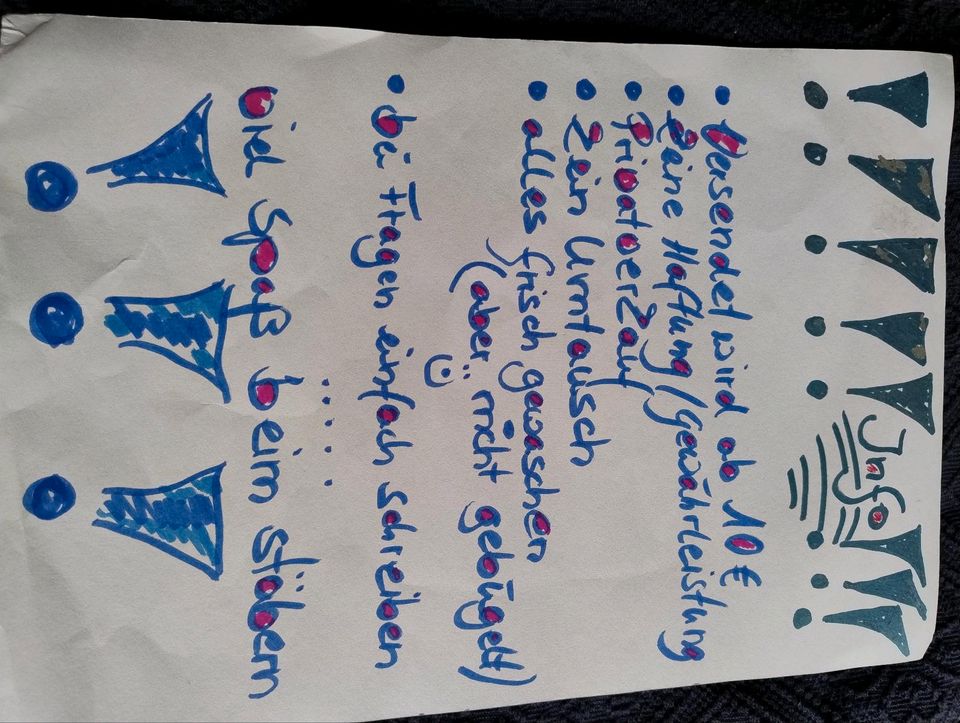 !!!!! Info !!!
• Versendet wird ab 10 €
• Keine Haftung/Gewährleistung
• Privatverkauf
• Kein Umtausch
• alles frisch gewaschen
(aber nicht gebügelt)
• bei Fragen einfach schreiben
.....
Viel Spaß beim stöbern
!!!